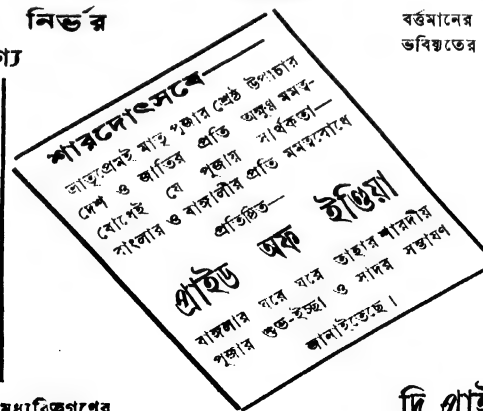 নির্ভর
বর্ত্তমানের
ভবিষ্যতের
শারদোৎসবে—
ভ্রাতৃপ্রেমই মাতৃ পূজার শ্রেষ্ঠ উপাচার
দেশ ও জাতির প্রতি অক্ষুণ্ণ মমত্ব-
বোধেই যে পূজার সার্থকতা—
বাংলার ও বাঙ্গালীর প্রতি মমত্ববোধে
প্রতিষ্ঠিত—
প্রাইড অফ ইণ্ডিয়া
বাঙ্গলার ঘরে ঘরে তাহার শারদীয়
পূজার শুভ-ইচ্ছা ও সাদর সম্ভাষণ
জানাইতেছে।
মধ্যবিত্তগণের
দি প্রাই